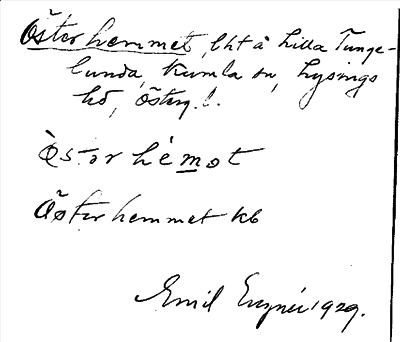 Österhemmet, lht å Lilla Tunge-
lunda, Kumla sn, Lysings
hd, Österg. l.
Òstərhémət
Österhemmet kb
Emil 1929.